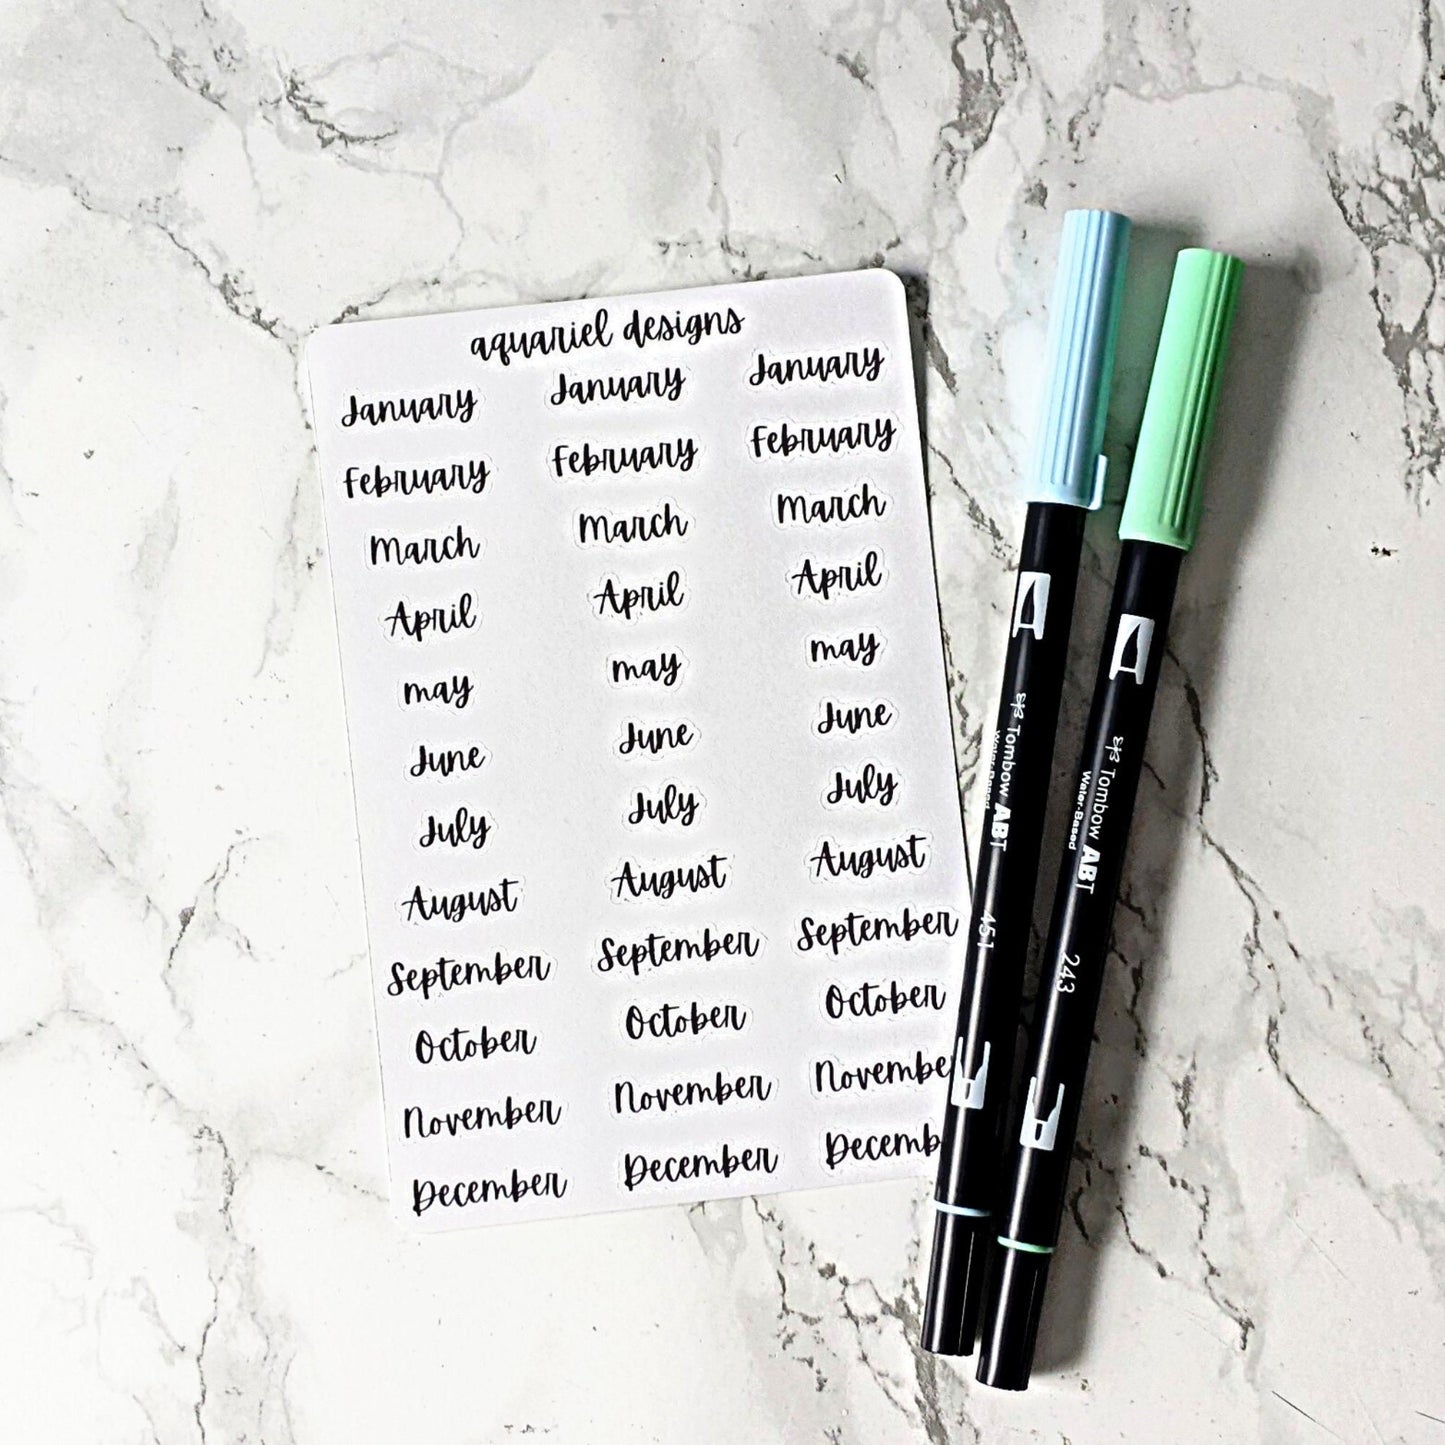 aquariel designs
January January January
February February February
March March March
April April April
may may may
June June June
July July July
August August August
September September September
October October October
November November Novembe
December December Decemb
Tombow ABT
Water-Based
451
Tombow ABT
Water-Based
243